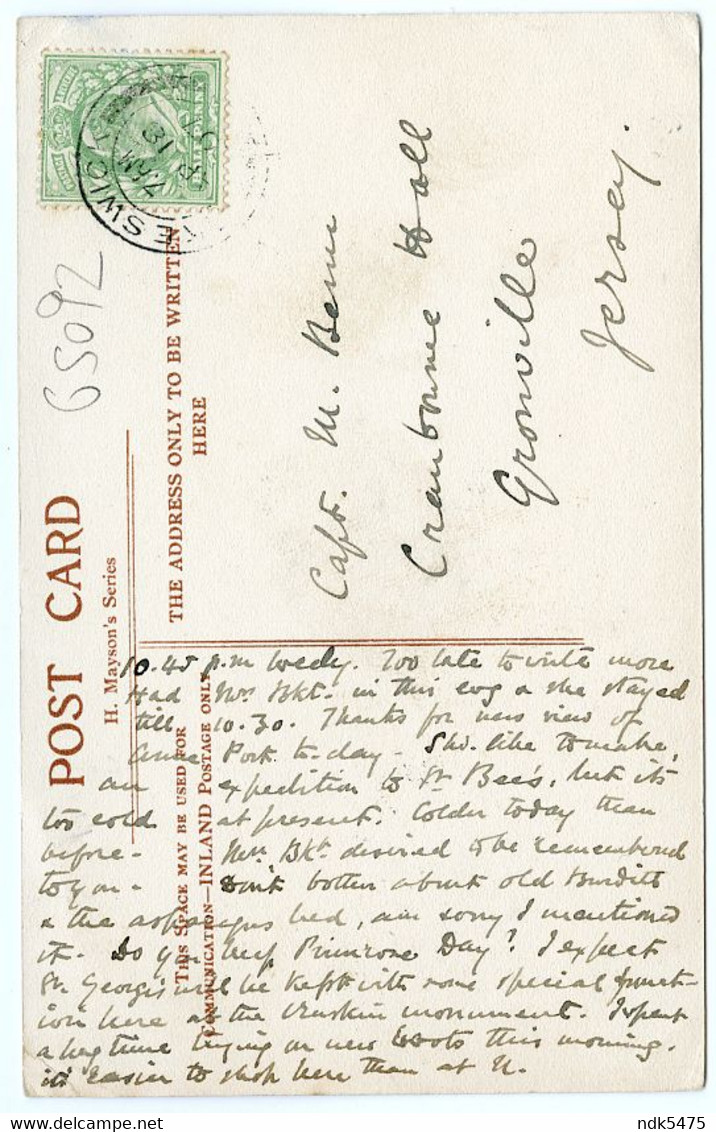 POST CARD
H. Mayson's Series
THE ADDRESS ONLY TO BE WRITTEN
HERE
THIS SPACE MAY BE USED FOR
COMMUNICATION—INLAND POSTAGE ONLY
HALFPENNY
KESWICK
7 AM
65092
Capt. M.
Cranbourne Hall
Gronville
Jersey.
10.45 p.m Wedy. Too late to write more
Had Mrs Bkt. in this evg & she stayed
till 10.30. Thanks for new view of
Anne Port to-day - Shd. like to make,
an expedition to St Bee's, but its
too cold at present. Colder today than
before - Mrs Bkt desired to be remembered
to you - Don't bother about old Burditt
& the asparagus bed, am sorry I mentioned
it - Do you keep Primrose Day? I expect
St. George's will be kept with some special funct-
ion here at the Ruskin monument. I spent
a long time trying on new boots this morning.
its easier to shop here than at
ndk5475